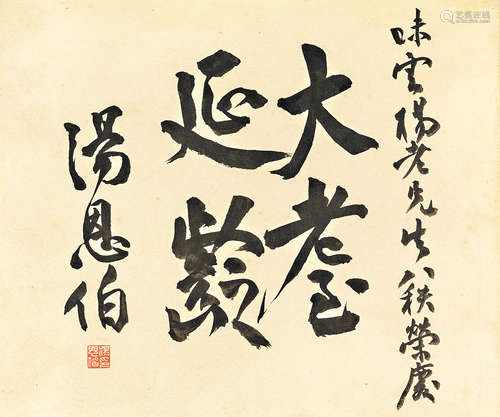 味雲楊老先生八秩榮慶
大耋
延齡
湯恩伯